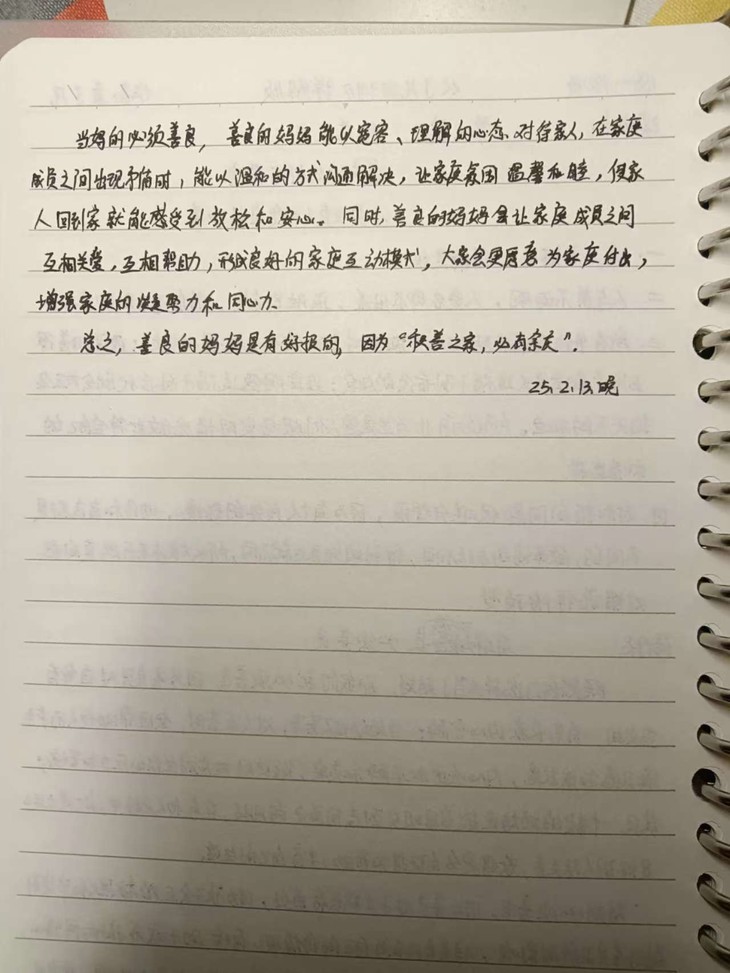 当妈的必须善良，善良的妈妈能以宽容、理解的心态对待家人，在家庭
成员之间出现矛盾时，能以温和的方式沟通解决，让家庭氛围温馨和睦，但家
人回到家就能感受到放松和安心。同时，善良的妈妈会让家庭成员之间
互相关爱，互相帮助，形成良好的家庭互动模式，大家会更愿意为家庭付出，
增强家庭的凝聚力和同心力。
总之，善良的妈妈是有好报的，因为“积善之家，必有余庆”。
25.2.13.晚